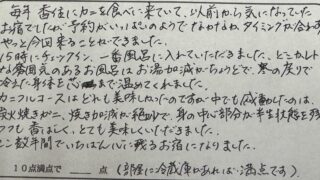 毎年 香住にカニを食べに来ていて、以前から気になっていた
お宿でしたが、予約がいっぱいのようでなかなかタイミングが合わず
やっと今回来ることができました。
15時にチェックイン、一番風呂に入れていただきました。どこかレト
な雰囲気のあるお風呂はお湯加減がちょうどで、寒の戻りで
冷えた身体を芯まで温めてくれました。
カニフルコースはどれも美味しかったのですが中でも感動したのは、
炭火焼きがニ、焼き加減が絶妙で、身の中心部分が半生状態を残
フワフも香ばしく、とても美味しくいただきました。
ここ数年間でいちばん心に残るお宿になりました。
10点満点で 点 (部屋に冷蔵庫があれば満点です)